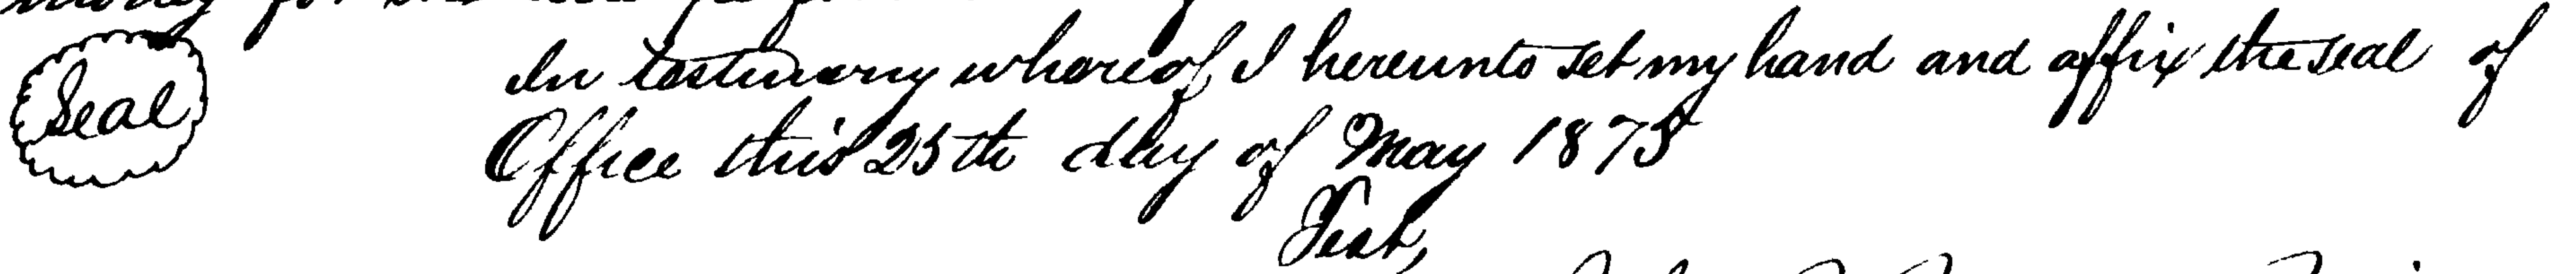 Seal
In testimony whereof, I hereunto set my hand and affix the seal of
Office this 25th day of May 1875
Test,